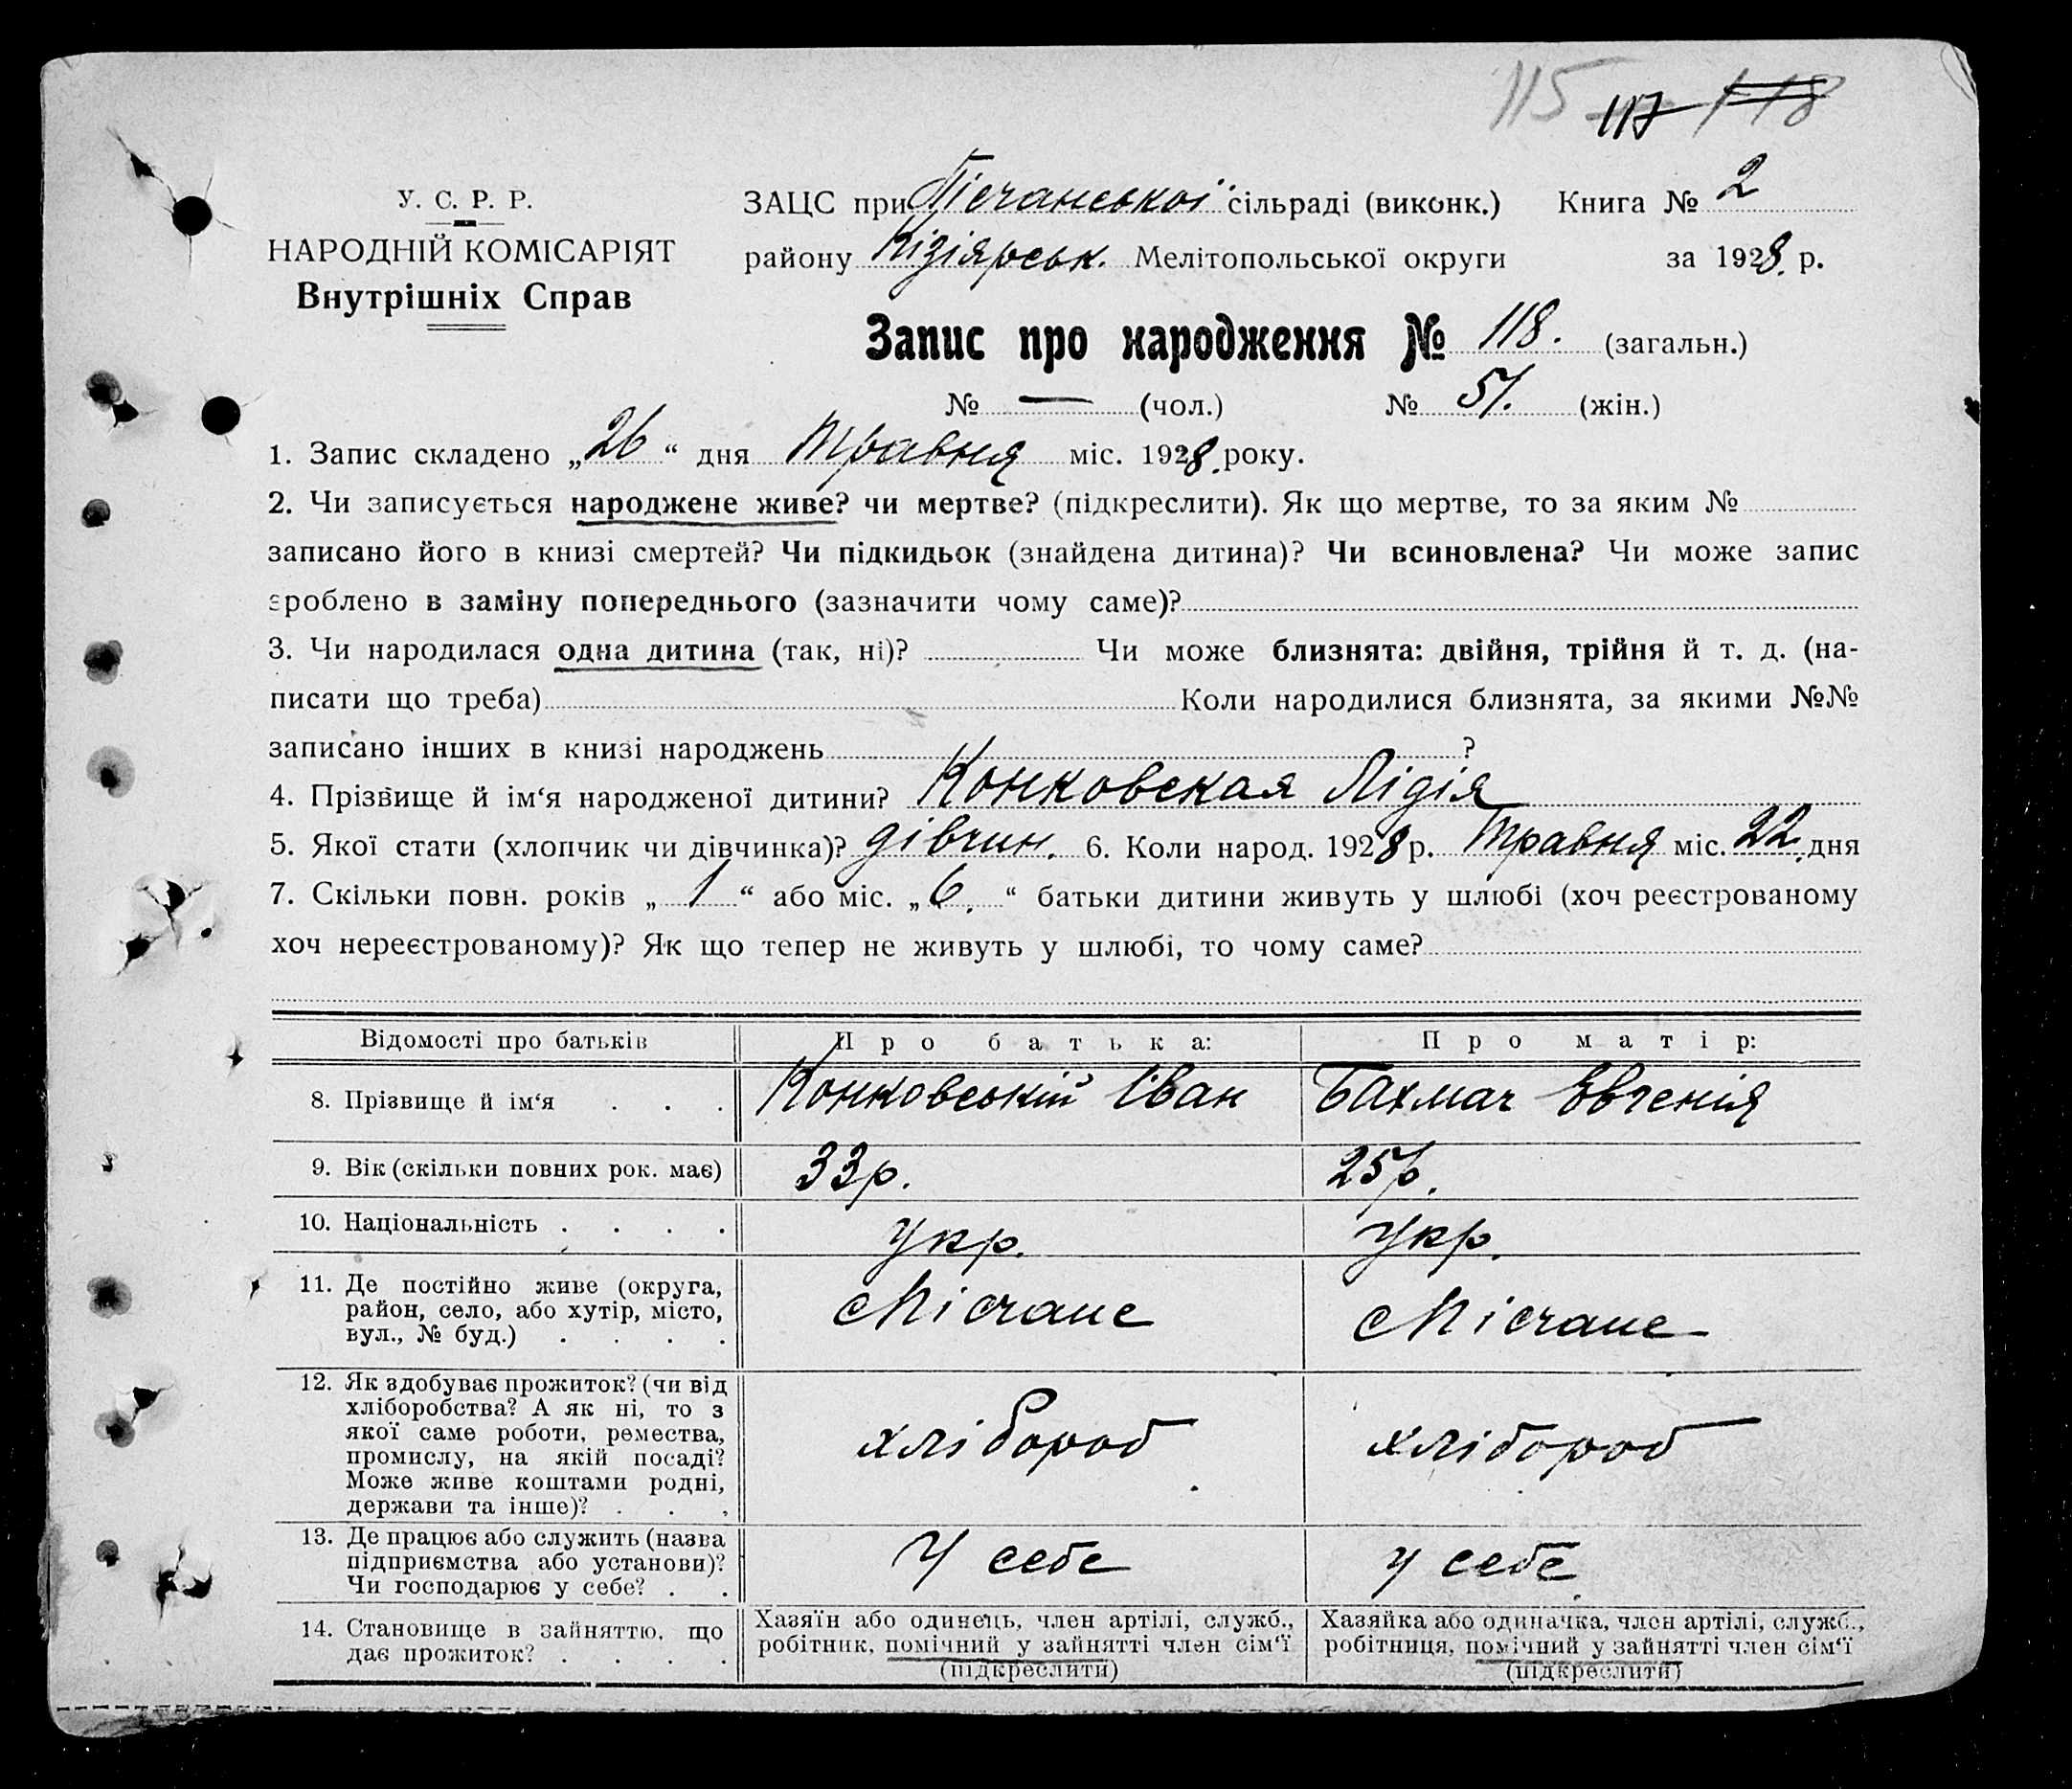 115 117 118
У. С. Р. Р.
НАРОДНІЙ КОМІСАРІЯТ
Внутрішніх Справ
ЗАЦС при Пісчанської сільраді (виконк.) Книга № 2
району Кізіярськ. Мелітопольської округи за 1928. р.
Запис про народження № 118. (загальн.)
№ — (чол.) № 51. (жін.)
1. Запис складено „26“ дня Травня міс. 1928. року.
2. Чи записується народжене живе? чи мертве? (підкреслити). Як що мертве, то за яким №
записано його в книзі смертей? Чи підкидьок (знайдена дитина)? Чи всиновлена? Чи може запис
зроблено в заміну попереднього (зазначити чому саме)?
3. Чи народилася одна дитина (так, ні)? Чи може близнята: двійня, трійня й т. д. (на-
писати що треба) Коли народилися близнята, за якими №№
записано інших в книзі народжень ?
4. Прізвище й ім‘я народженої дитини? Конковская Лідія
5. Якої стати (хлопчик чи дівчинка)? дівчин. 6. Коли народ. 1928 р. Травня міс. 22. дня
7. Скільки повн. років „1“ або міс. „6.“ батьки дитини живуть у шлюбі (хоч реєстрованому
хоч нереєстрованому)? Як що тепер не живуть у шлюбі, то чому саме?
Відомості про батьків Про батька: Про матір:
8. Прізвище й ім‘я . . . Конковській Іван Бахмач Євгенія
9. Вік (скільки повних рок. має) 33р. 25р.
10. Національність . . . . Укр. Укр.
11. Де постійно живе (округа,
район, село, або хутір, місто,
вул., № буд.) . . . .
сПісчане сПісчане
12. Як здобуває прожиток? (чи від
хліборобства? А як ні, то з
якої саме роботи, ремества,
промислу, на якій посаді?
Може живе коштами родні,
держави та інше)? . . .
хлібороб хлібороб
13. Де працює або служить (назва
підприємства або установи)?
Чи господарює у себе? . .
У себе у себе
14. Становище в зайняттю, що
дає прожиток? . . . .
Хазяїн або одинець, член артілі, служб.,
робітник, помічний у зайнятті член сім‘ї
(підкреслити)
Хазяйка або одиначка, член артілі, служб.,
робітниця, помічний у зайнятті член сім‘ї
(підкреслити)